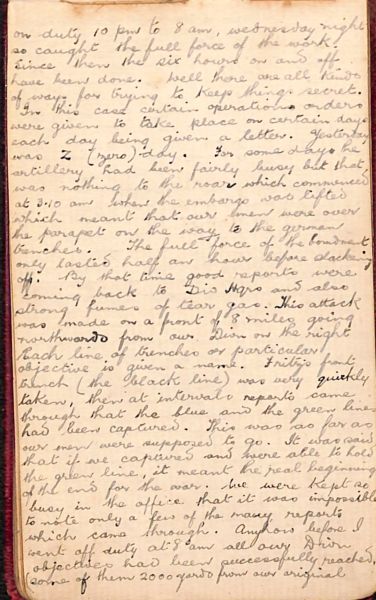 on duty 10 pm to 8 am, wednesday night
so caught the full force of the work.
Since then the six hours on and off
have been done. Well there are all kinds
of ways for trying to keep things secret.
In this case certain operation orders
were given to take place on certain days
each day being given a letter. Yesterday
was Z (zero) day. For some days the
artillery had been fairly busy but that
was nothing to the roar which commenced
at 3.10 am when the embargo was lifted
which meant that our men were over
the parapet on the way to the german
trenches. The full force of the bombment
only lasted half an hour before slackening
off. By that time good reports were
coming back to Div Hqrs and also
strong fumes of tear gas. This attack
was made on a front of 8 miles going
northwards from our Divn on the right
Each line of trenches or particular
objective is given a name. Fritz's front
trench (the black line) was very quickly
taken, then at intervals reports came
through that the blue and the green lines
had been captured. This was as far as
our men were supposed to go. It was said
that if we captured and were able to hold
the green line, it meant the real beginning
of the end for the war. We were kept so
busy in the office that it was impossible
to note only a few of the many reports
which came through. Anyhow before I
went off duty at 8 am all our Divn
objectives had been successfully reached
(some of them 2000 yards from our original